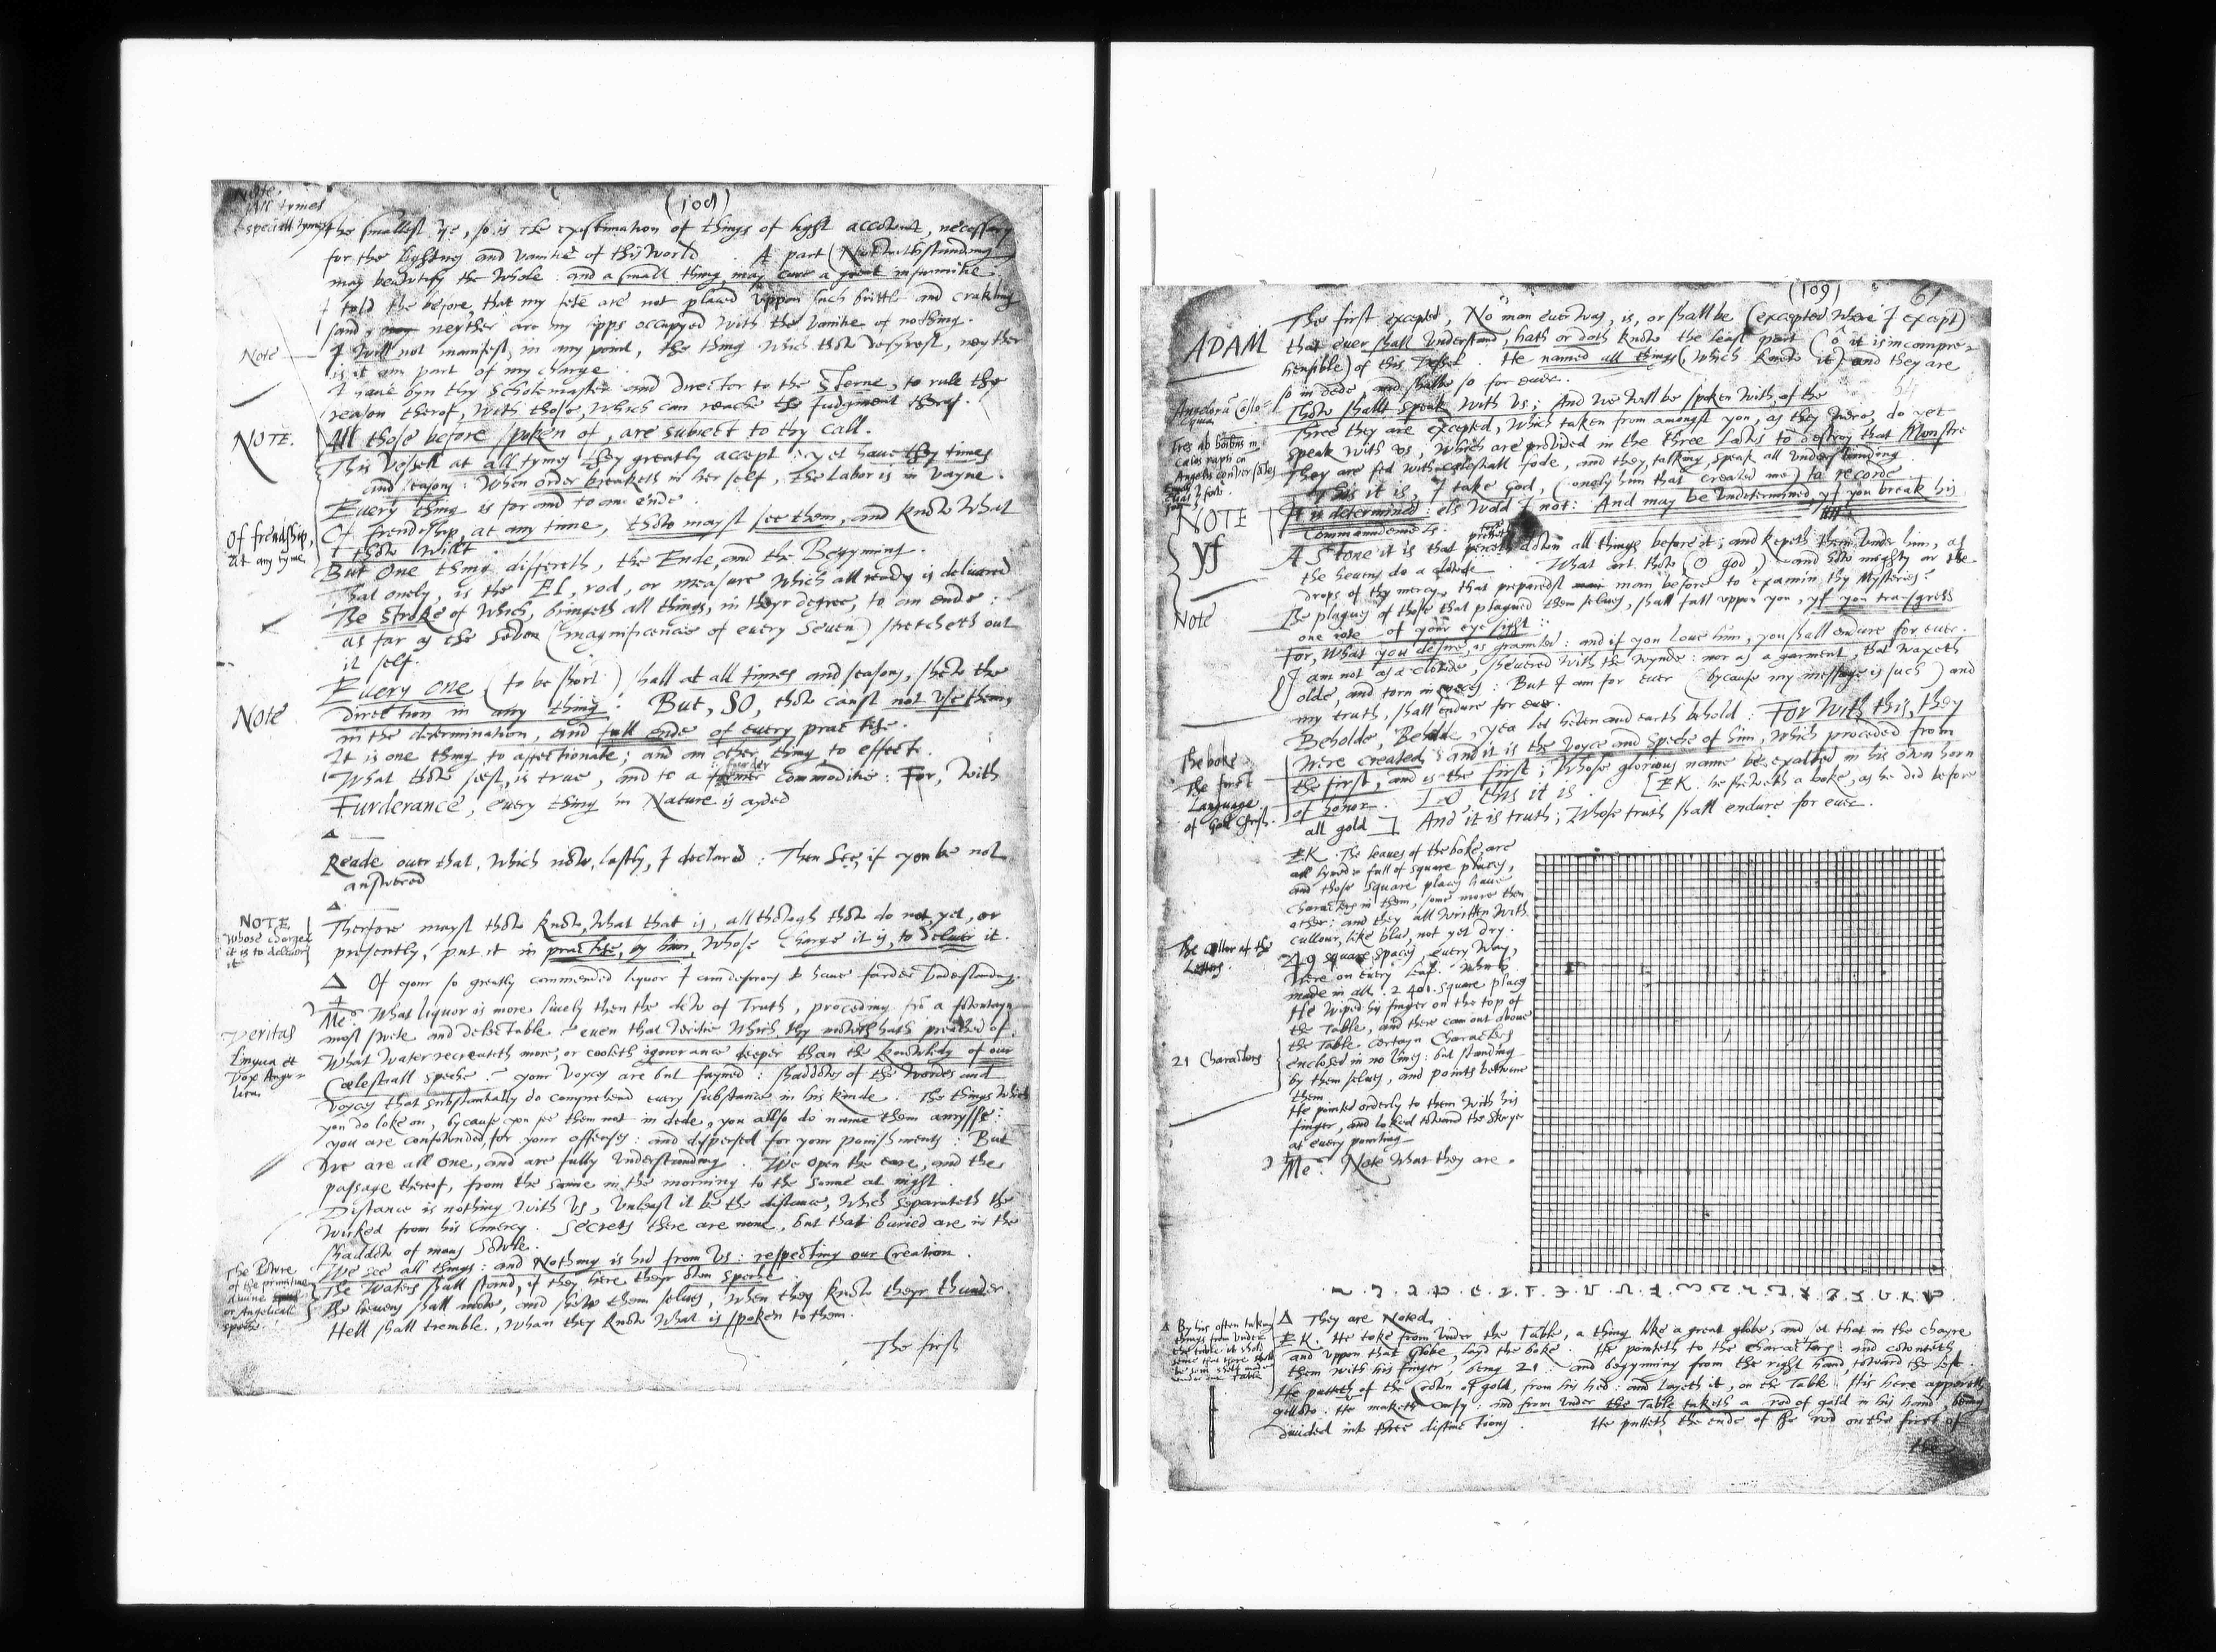 (108)
Note.
All tymes
speciall tymes
the smallest
so is the
of things of light account, necessary
for the lightnes and vanitie of this World. A part (Notwithstanding)
may beautify the Whole: and a small thing, may cure a great infirmitie.
I told the before, that my fete are not placed vppon such brittle and crakling
sand, neyther are my lipps occupyed with the vanitie of nothing.
Note
I Will not manifest, in any point, the thing which thow desyrest, neyther
is it any part of my charge.
I haue byn thy Scholemaster and director to the Sterne, to rule the
reason therof, with those, which can reache the Judgment therof.
NOTE.
All those before spoken of, are subiect to thy call.
This vessell at all tymes they greatly accept: yet haue they times
and seasons: When order breaketh in her self, the Labor is in vayne.
Every thing is for and to an ende.
Of frendship,
at any tyme
Of frendship, at any time, thow mayst see them, and know what
thow wilt
But One thing differeth, the Ende, and the Begynning.
That onely, is the El, rod, or measure which all ready is deliuered
The stroke of which, bringeth all things, in theyr degree, to an ende:
as far as the seven (magnificencies of every Seven) stretcheth out
it self.
Every one (to be short) shall at all times and seasons, shew the
Note
direction in any thing. But, SO, thow canst not vse them,
in the determination, and full ende of every practise.
It is one thing, to affectionate; and an other thing to effecte.
What thow seest, is true, and to a former furder Commoditie: For, With
Furderance, every thing in Nature is ayded
Δ
Reade over that, which now, lastly, I declared: Then See, if you be not
answered
Δ
NOTE
Whose charge
it is to deliuer
it
Therfore mayst thow know, What that is, allthowgh thow do not, yet, or
presently, put it in practise, by him, Whose Charge it is, to deliuer it.
Δ Of your so greatly commended liquor I am desyrous to haue farder vnderstanding.
Me. What liquor is more lively then the dew of Truth, proceding from a fowntayn
most swete and delectable? even that veritie which thy mowth hath preached of.
veritas
Lingua et
Vox Ange-
lica
What water recreateth more, or cooleth ignorance deeper than the knowledg of our
Cælestiall speche? your voyces are but fayned: shaddows of the wordes and
voyces that substantially do comprehend every substance in his kinde. The things which
you do loke on, bycause you see them not in dede, you allso do name them amysse:
you are confownded, for your offenses: and dispersed for your punishments: But
we are all one, and are fully vnderstanding. We open the eare, and the
passage therof, from the sonne in the morning to the sonne at night.
Distance is nothing with vs, vnleast it be the distance, which separateth the
wicked from his mercy. Secrets there are none, but that buried are in the
shaddow of mans Sowle.
We see all things: and Nothing is hid from vs: respecting our Creation.
The Powre
of the primitive
divine
or Angelicall
speche
The Waters shall stand, if they here theyr own speche.
The heuens shall move, and shew them selues, when they know theyr thunder.
Hell shall tremble, whan they know what is spoken to them.
The first
(109)
61
ADAM
The first excepted, No man ever was, is, or shall be (excepted where I except)
that ever shall vnderstand, hath or doth know the least part (ô it is incompre-
hensible) of this Vessel. He named all things (which knew it) and they are
so in dede and shalbe so for euer.
Thow shallt speak with vs; And we will be spoken with, of the
Three they are excepted, which taken from amongst you, as they were, do yet
speak with vs, which are provided in the three Lawes to destroy that Monstre
They are fed with cælestiall fode, and they, talking, speak all vnderstanding
This it is, I take God, (onely him that created me) to recorde
NOTE
yf
It is determined: els wold I not: And may be vndetermined, yf you break his
Commaundements.
A Stone it is that perceth down all things before it; and kepeth them vnder him, as
the heuens do a clowde. What art thow, (O god,) and how mighty ar the
drops of thy mercy, that preparedst man before to examin thy Mysteries?
Note
The plagues of those that plagued them selues, shall fall vppon you, yf you transgress
one iote of your eye sight:
For, What you desire, is graunted: and if you loue him, you shall endure for euer.
I am not as a clowde, shevered with the wynde: nor as a garment, that waxeth
olde, and torn in peces: But I am for ever (bycause my message is such) and
my truth, shall endure for ever.
Beholde, Beholde, yea let heven and earth behold: For with this, they
The boke
The first
Language
of God Christ.
were created: and it is the voyce and speche of him, which proceded from
the first, and is the first; Whose glorious name be exalted in his own horn
of honor. LO this it is. [E.K. he sheweth a boke, as he did before
all gold] And it is truth; Whose truth shall endure for euer.
E.K. The leaves of the boke, are
all lyned: full of square places,
and those square places haue
characters in them, some more then
other: and they all written with
cullour, like blud, not yet dry.
The cullor of the
Letters.
49 square spaces, every way,
were on every leaf. which
made in all. 2401. square places
He wiped his finger on the top of
the Table, and there cam out above
21 Characters
the Table, certayn Characters
enclosed in no lines: but standing
by them selues, and points betwene
them
He pointed orderly to them with his
finger, and loked toward the skryer
at every pointing
Me. Note what they are.
Δ They are Noted.
Δ By his often taking
things from vnder
the table it shold
seme that there shold
be som shelf made
vnder our Table
E.K. He toke from vnder the Table, a thing like a great globe, and set that in the chayre
and vppon that Globe, layd the boke. He pointeth to the characters: and cownteth
them with his finger, being 21: and begynning from the right hand, toward the left.
He putteth of the Crown of gold, from his hed: and layeth it, on the Table. His here appereth
yellow. He maketh cursy: and from vnder the Table taketh a rod of gold in his hand, being
divided into three distinctions. He putteth the ende of the rod on the first of
the